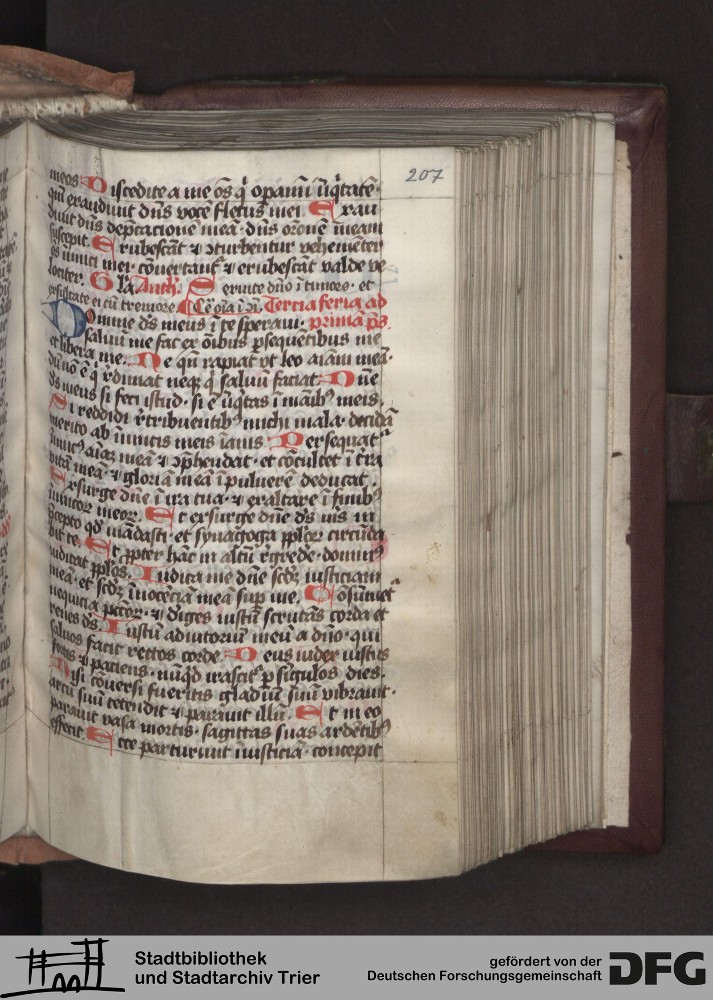 207
meos. Discedite a me oēs q̇ opamī īiq̇tatē·
qm̄ exaudiuit dn̄s vocē fletus mei. Exau
diuit dn̄s dep̄cationē meā· dn̄s orōnē meam
suscepit. Erubescāt ⁊ ↄturbentur vehemēter
oēs inimici mei· cōuertant᷑ ⁊ erubescāt valde ve
lociter. Gl̄a Anth. Seruite dn̄o ī timore· et
exsultate ei cū tremore Tercia feria ad
Domine ds̄ meus ī te speraui· primā ps̄.
saluū me fac ex ōibus ꝑsequētibus me
et libera me. Ne qn̄ rapiat vt leo aīam meā·
dū nō ē q̇ redimat neqꝫ q̇ saluū faciat. Dn̄e
ds̄ meus si feci istud· si ē īiq̇tas ī māibꝰ meis.
Si reddidi retribuentibꝰ michi mala· decidā
merito ab inimicis meis ianis. Persequat᷑
inimicꝰ aīaꝫ meā ⁊ ↄp̄hendat· et cōculcet ī t̄ra
vitā meā· ⁊ gloriā meā ī puluerē deducat.
Exsurge dn̄e ī ira tua· ⁊ exaltare ī finibꝰ
inimicoꝝ meoꝝ. Et exsurge dn̄e ds̄ ms̄ in
p̄cepto qd̄ mādasti· et synagoga pploꝝ circūda
bit te. Et ꝓpter hāc in altū regrede· dominꝰ
iudicat pplos. Iudica me dn̄e scd̄ꝫ iusticiam
meā· et scd̄ꝫ īnocēciā meā suꝑ me. Cōsumet᷑
nequicia pctōꝝ· ⁊ diriges iustū scrutās corda et
renes ds̄. Iustū adiutoriū meū a dn̄o· qui
saluos facit rectos corde. Deus iudex iustus
fortis ⁊ paciens· nūqd̄ irascit᷑ ꝑ singulos dies.
Nisi cōuersi fueritis gladiū suū vibrauit·
arcū suū tetendit ⁊ parauit illū. Et in eo
parauit vasa mortis· sagittas suas ardētibꝰ
effecit. Ecce parturiuit iīusticiā· concepit
Stadtbibliothek
und Stadtarchiv Trier
gefördert von der
Deutschen Forschungsgemeinschaft DFG